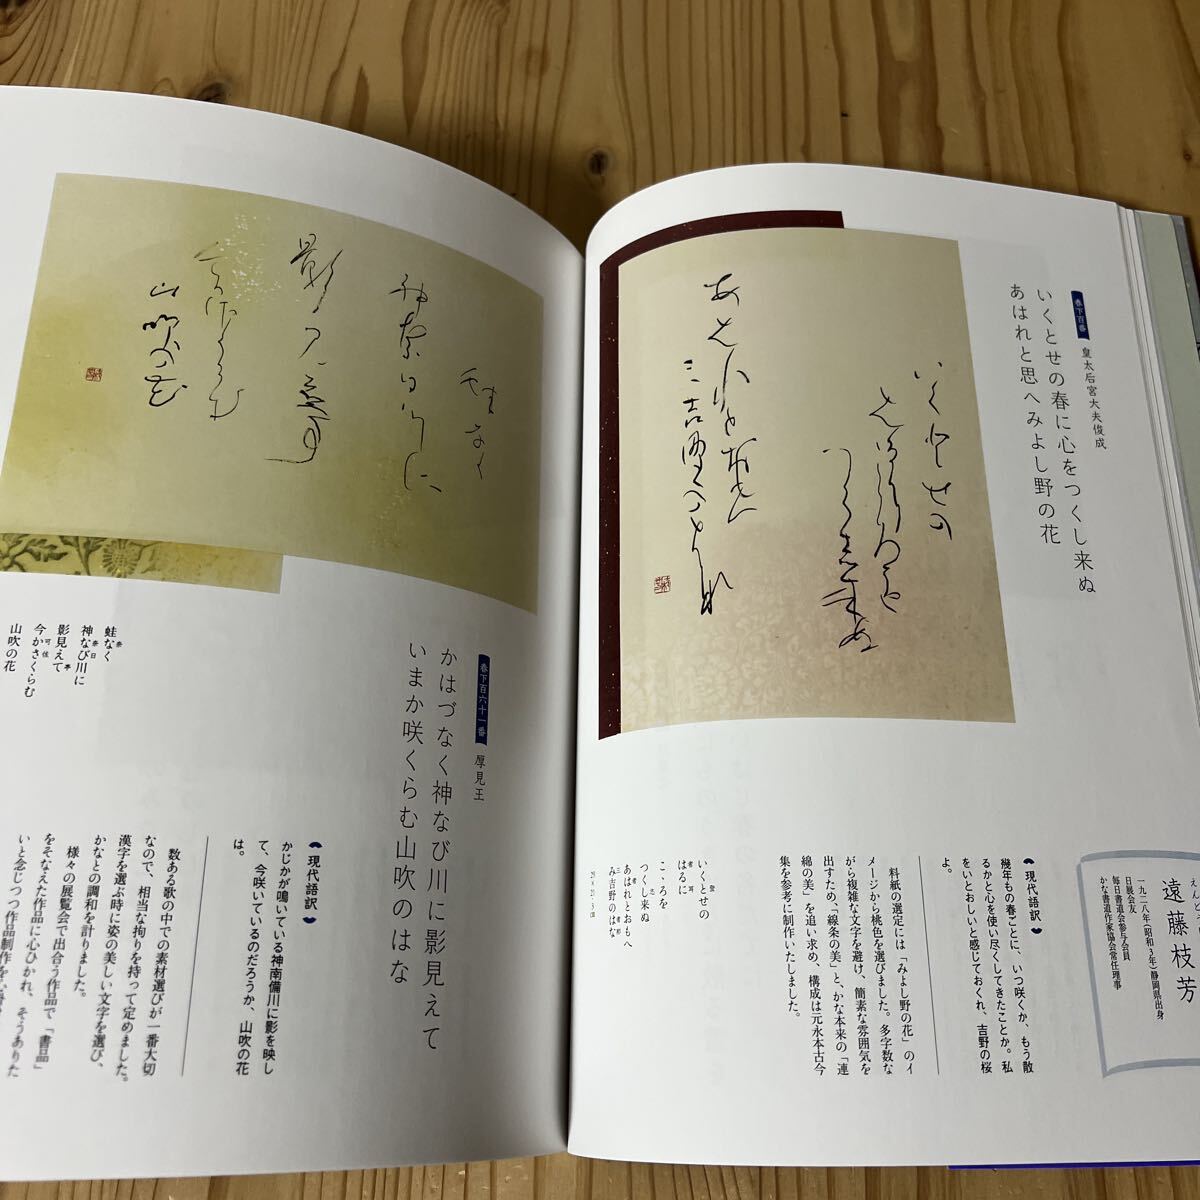 春下百番
皇太后宮大夫俊成
いくとせの春に心をつくし来ぬ
あはれと思へみよし野の花
えんど
遠藤枝芳
一九二八年(昭和3年)静岡県出身
日展会友
毎日書道会参与会員
かな書道作家協会常任理事
現代語訳
幾年もの春ごとに、いつ咲くか、もう散
るかと心を使い尽くしてきたことか。私
をいとおしいと感じておくれ、吉野の桜
よ。
料紙の選定には「みよし野の花」のイ
メージから桃色を選びました。多字数な
がら複雑な文字を避け、簡素な雰囲気を
出すため、「線条の美」と、かな本来の「連
綿の美」を追い求め、構成は元永本古今
集を参考に制作いたしました。
いくとせの
はるに
こゝろを
つくし来ぬ
あはれとおもへ
み吉野のはな
春下百六十一番
厚見王
かはづなく神なび川に影見えて
いまか咲くらむ山吹のはな
現代語訳
かじかが鳴いている神南備川に影を映し
て、今咲いているのだろうか、山吹の花
は。
数ある歌の中での素材選びが一番大切
なので、相当な拘りを持って定めました。
漢字を選ぶ時に姿の美しい文字を選び、
かなとの調和を計りました。
様々の展覧会で出合う作品で「書品」
をそなえた作品に心ひかれ、そうありた
いと念じつつ作品制作を
蛙なく
神なび川に
影見えて
今かさくらむ
山吹の花